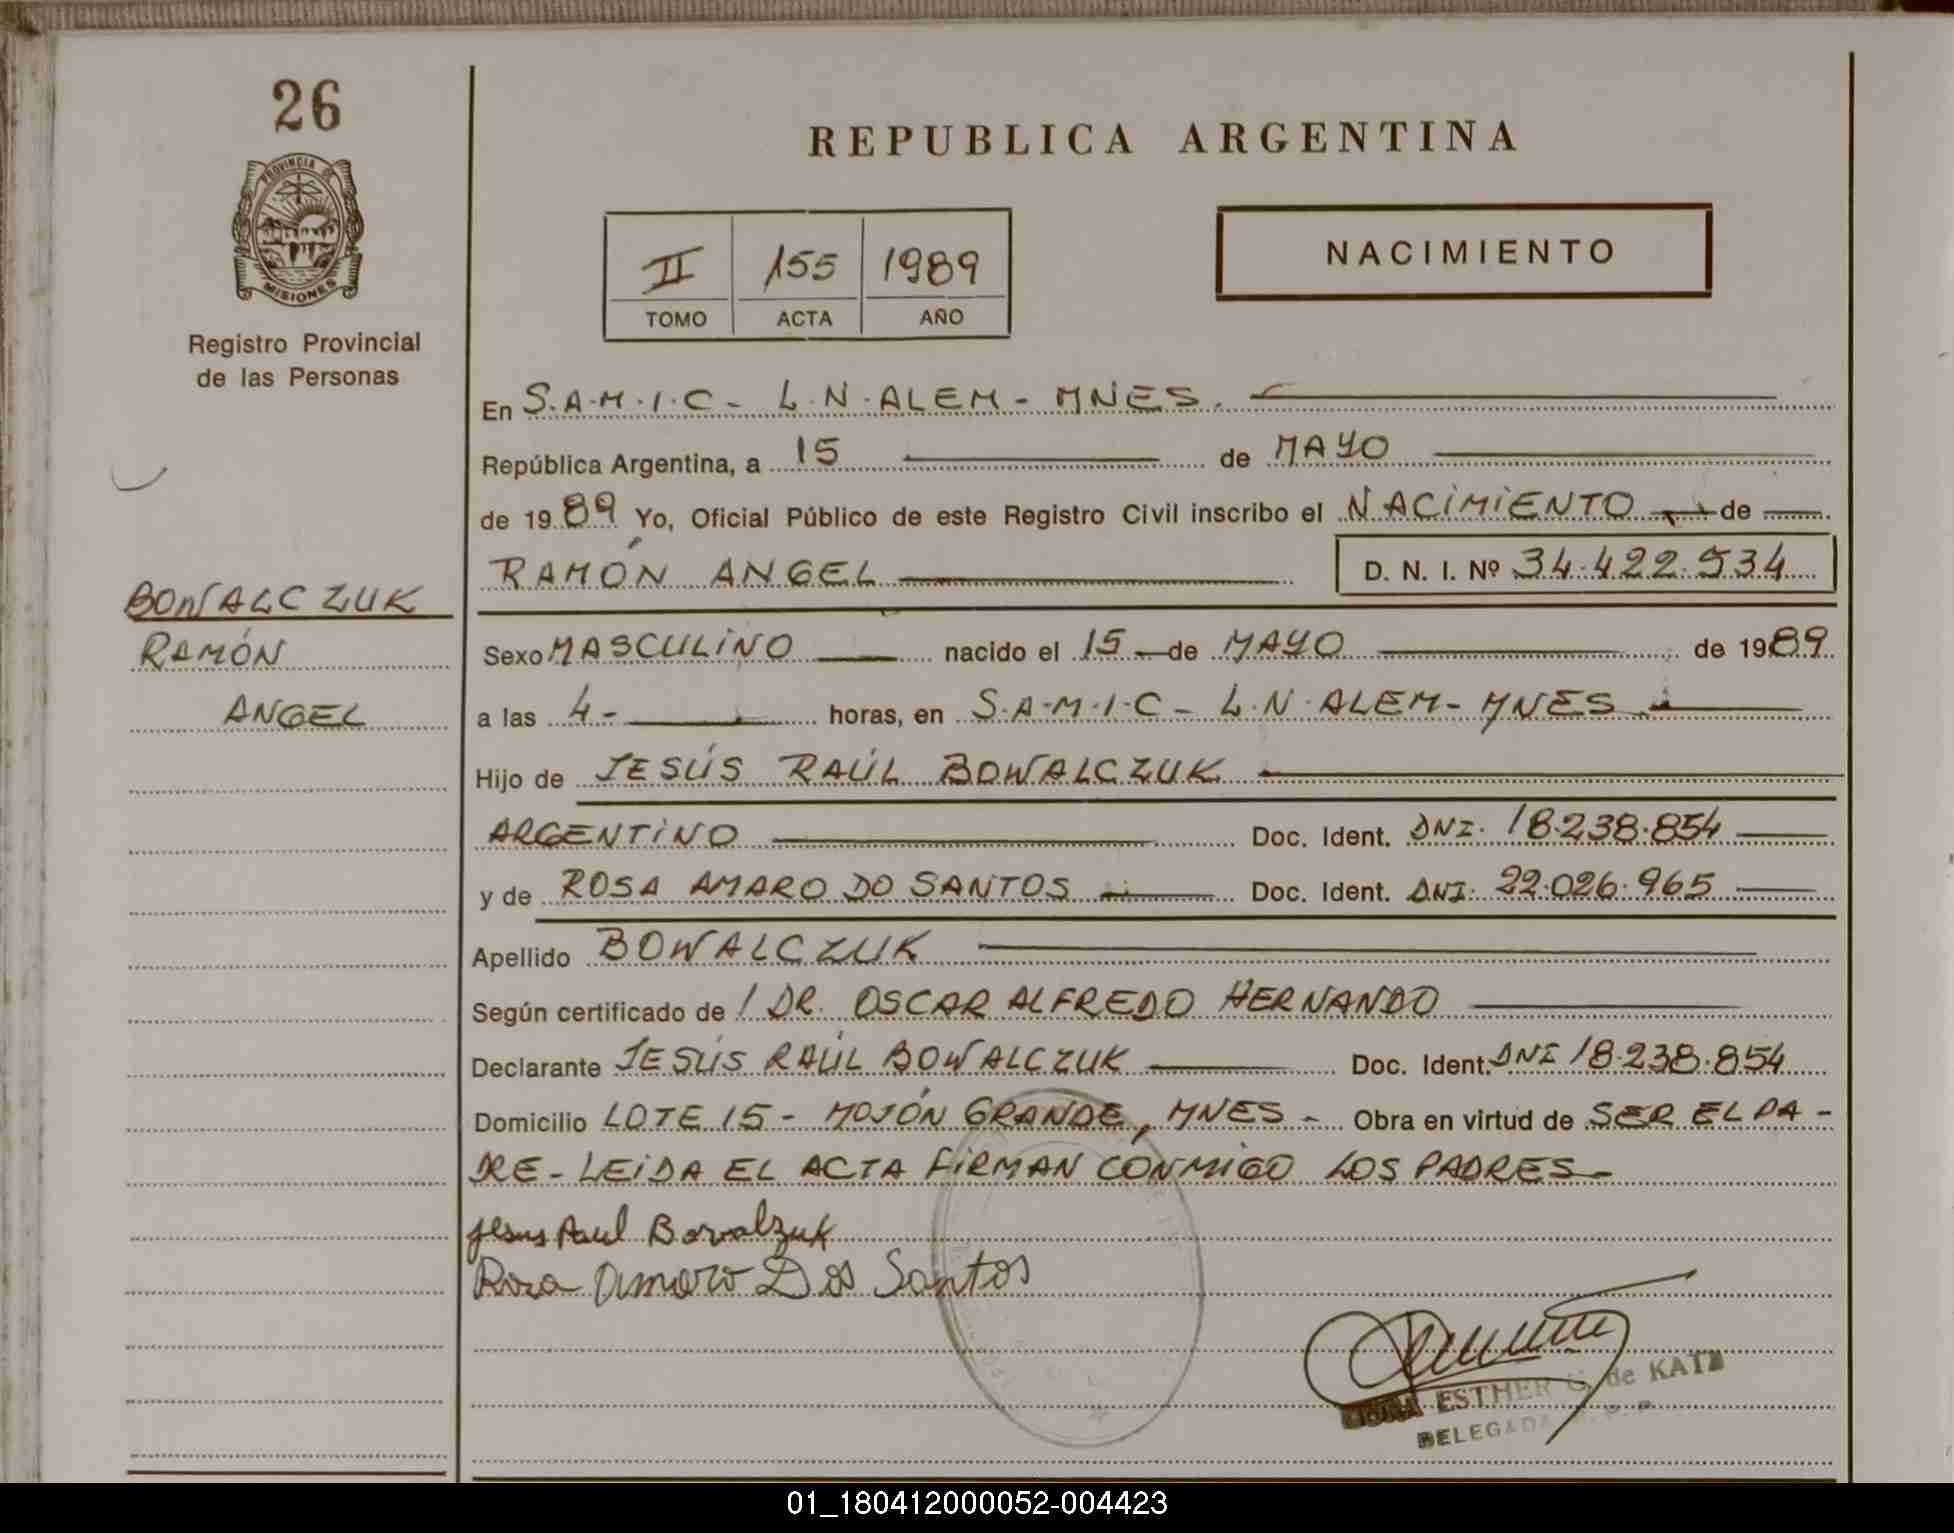 26
PROVINCIA DE
MISIONES
Registro Provincial
de las Personas
BOWALCZUK
RAMÓN
ANGEL
REPUBLICA ARGENTINA
II 155 1989
TOMO ACTA AÑO
NACIMIENTO
En S.A.M.I.C - L.N.ALEM - MNES.
República Argentina, a 15 de MAYO
de 1989 Yo, Oficial Público de este Registro Civil inscribo el NACIMIENTO de
RAMÓN ANGEL D. N. I. Nº 34.422.534
Sexo MASCULINO nacido el 15 de MAYO de 1989
a las 4- horas, en S.A.M.I.C - L.N.ALEM - MNES
Hijo de JESÚS RAÚL BOWALCZUK
ARGENTINO Doc. Ident. DNI. 18.238.854
y de ROSA AMARO DO SANTOS Doc. Ident. DNI. 22.026.965
Apellido BOWALCZUK
Según certificado de / DR. OSCAR ALFREDO HERNANDO
Declarante JESÚS RAÚL BOWALCZUK Doc. Ident. DNI 18.238.854
Domicilio LOTE 15 - MOJÓN GRANDE, MNES - Obra en virtud de SER EL PA-
DRE - LEIDA EL ACTA FIRMAN CONMIGO LOS PADRES -
Jesus Raul Bovalzuk
Rosa Amaro Dos Santos
ESTHER G. de KATZ
DELEGADA R. P. P.
01_180412000052-004423